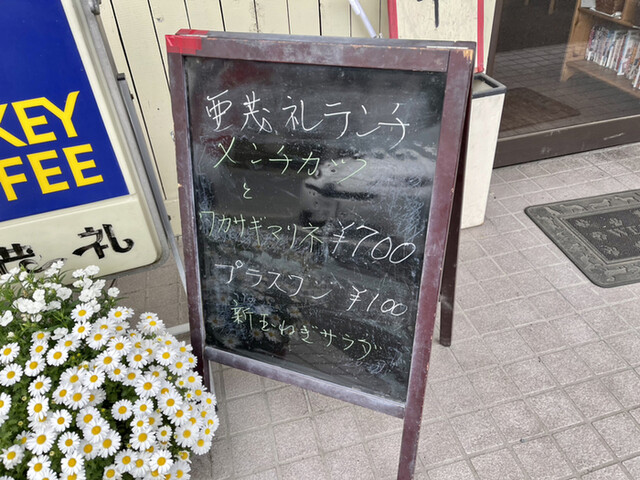 亜茂礼ランチ
メンチカツ
と
ワカサギマリネ ¥700
プラスワン ¥100
新玉ねぎサラダ
KEY
FEE
茂礼